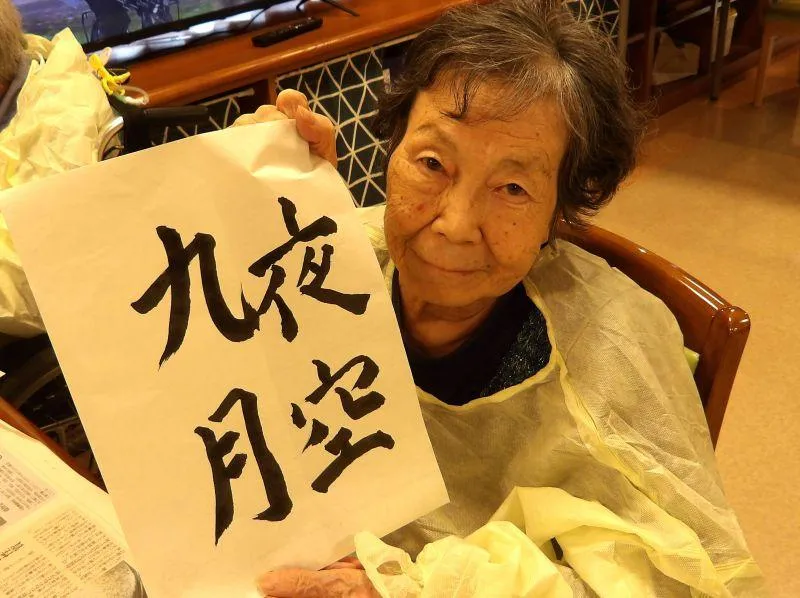 夜空
九月